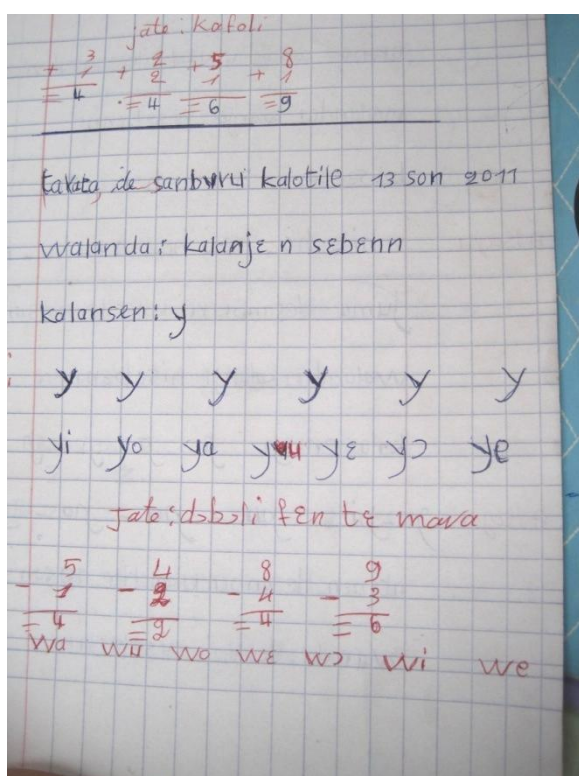 jate: kafoli
3 2 5 8
+ 1 + 2 + 1 + 1
= 4 = 4 = 6 = 9
tarata de sanburu kalotile 13 son 2011
walanda: kalanjɛ n sɛbɛnn
kalansen: y
y y y y y y
yi yo ya yu yɛ yɔ ye
jate: dɔbɔli fɛn tɛ mara
5 4 8 9
- 1 - 2 - 4 - 3
= 4 = 2 = 4 = 6
wa wu wo wɛ wɔ wi we